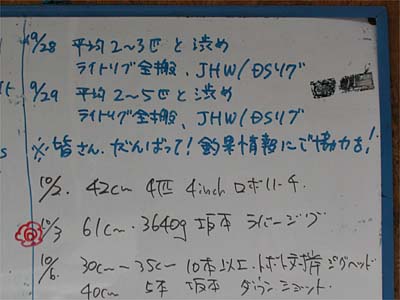 9/28 平均2〜3匹と渋め
ライトリグ全搬、JHW/DSリグ
9/29 平均2〜5匹と渋め
ライトリグ全搬、JHW/DSリグ
※皆さん、がんばって!釣果情報にご協力を!
10/2. 42cm 4匹 4inch ロボリーチ.
10/3 61cm・3640g 坂本 ラバージグ
10/6. 30cm〜35cm 10本以上 ジグヘッド
40cm 5本 坂本 ダウンショット